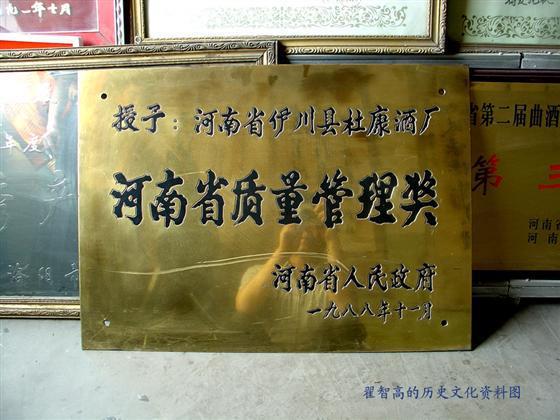 九一年七月
授予：河南省伊川县杜康酒厂
河南省质量管理奖
河南省人民政府
一九八八年十一月
年度
省第二届曲酒
第三
河南省
河南
翟智高的历史文化资料图